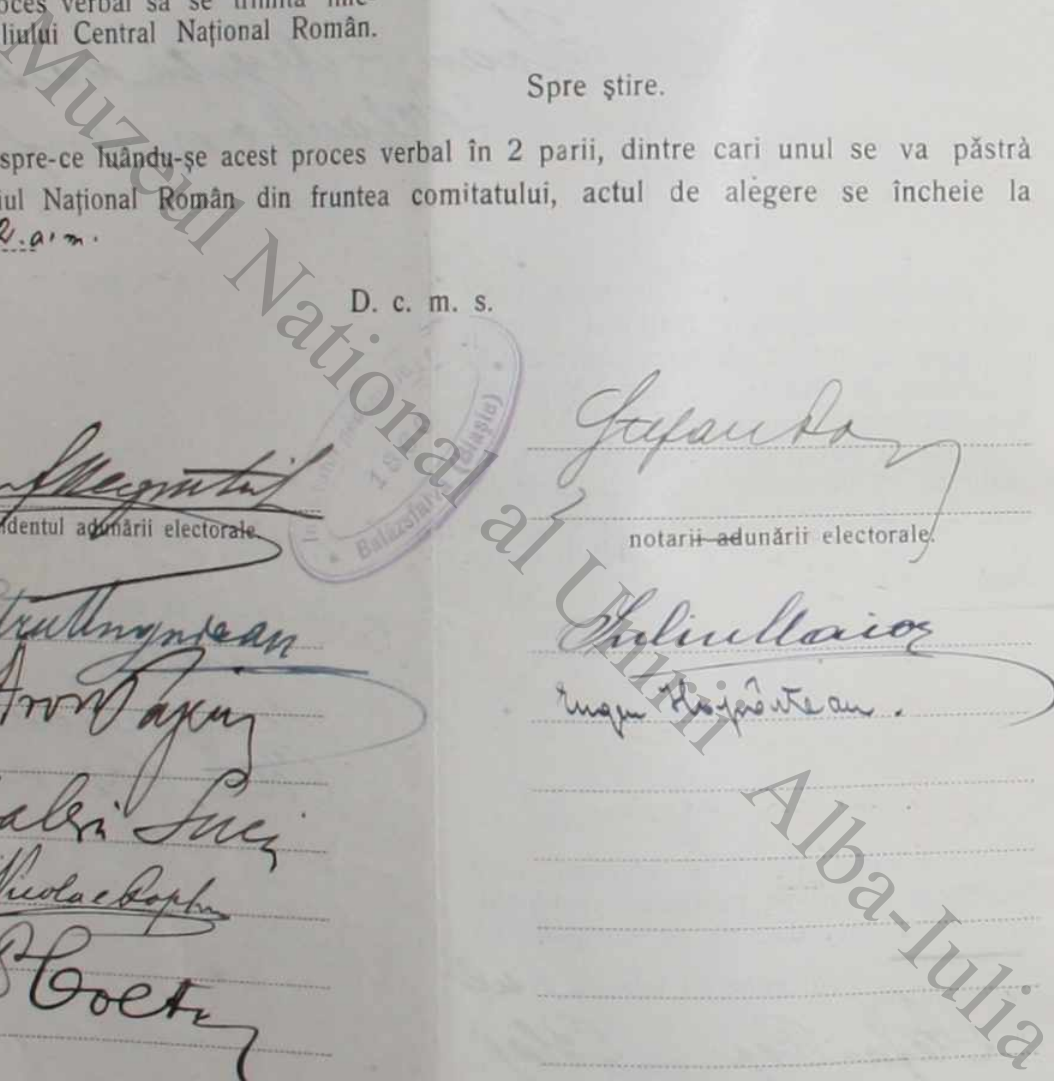 proces verbal să se trimită
liului Central Național Român.
Spre știre.
spre-ce luându-șe acest proces verbal în 2 parii, dintre cari unul se va păstrà
iul Național Român din fruntea comitatului, actul de alegere se încheie la
a. m.
D. c. m. s.
Balázsfalva (Blașiu)
Ștefan
identul adunării electorale.
notarii adunării electorale.
Ungurean
Iuliu Maior
Aron
Eugen Hopârtean.
Valeriu Suciu
Nicolae
Muzeul National al Unirii Alba-Iulia